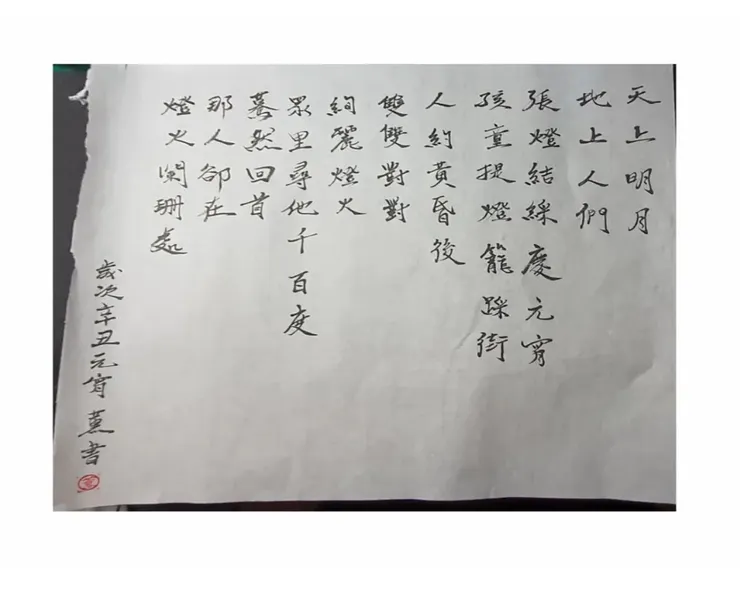 天上明月
地上人們
張燈結綵慶元宵
孩童提燈籠踩街
人約黃昏後
雙雙對對
絢麗燈火
眾里尋他千百度
驀然回首
那人卻在
燈火闌珊處
歲次辛丑元宵 蕙書